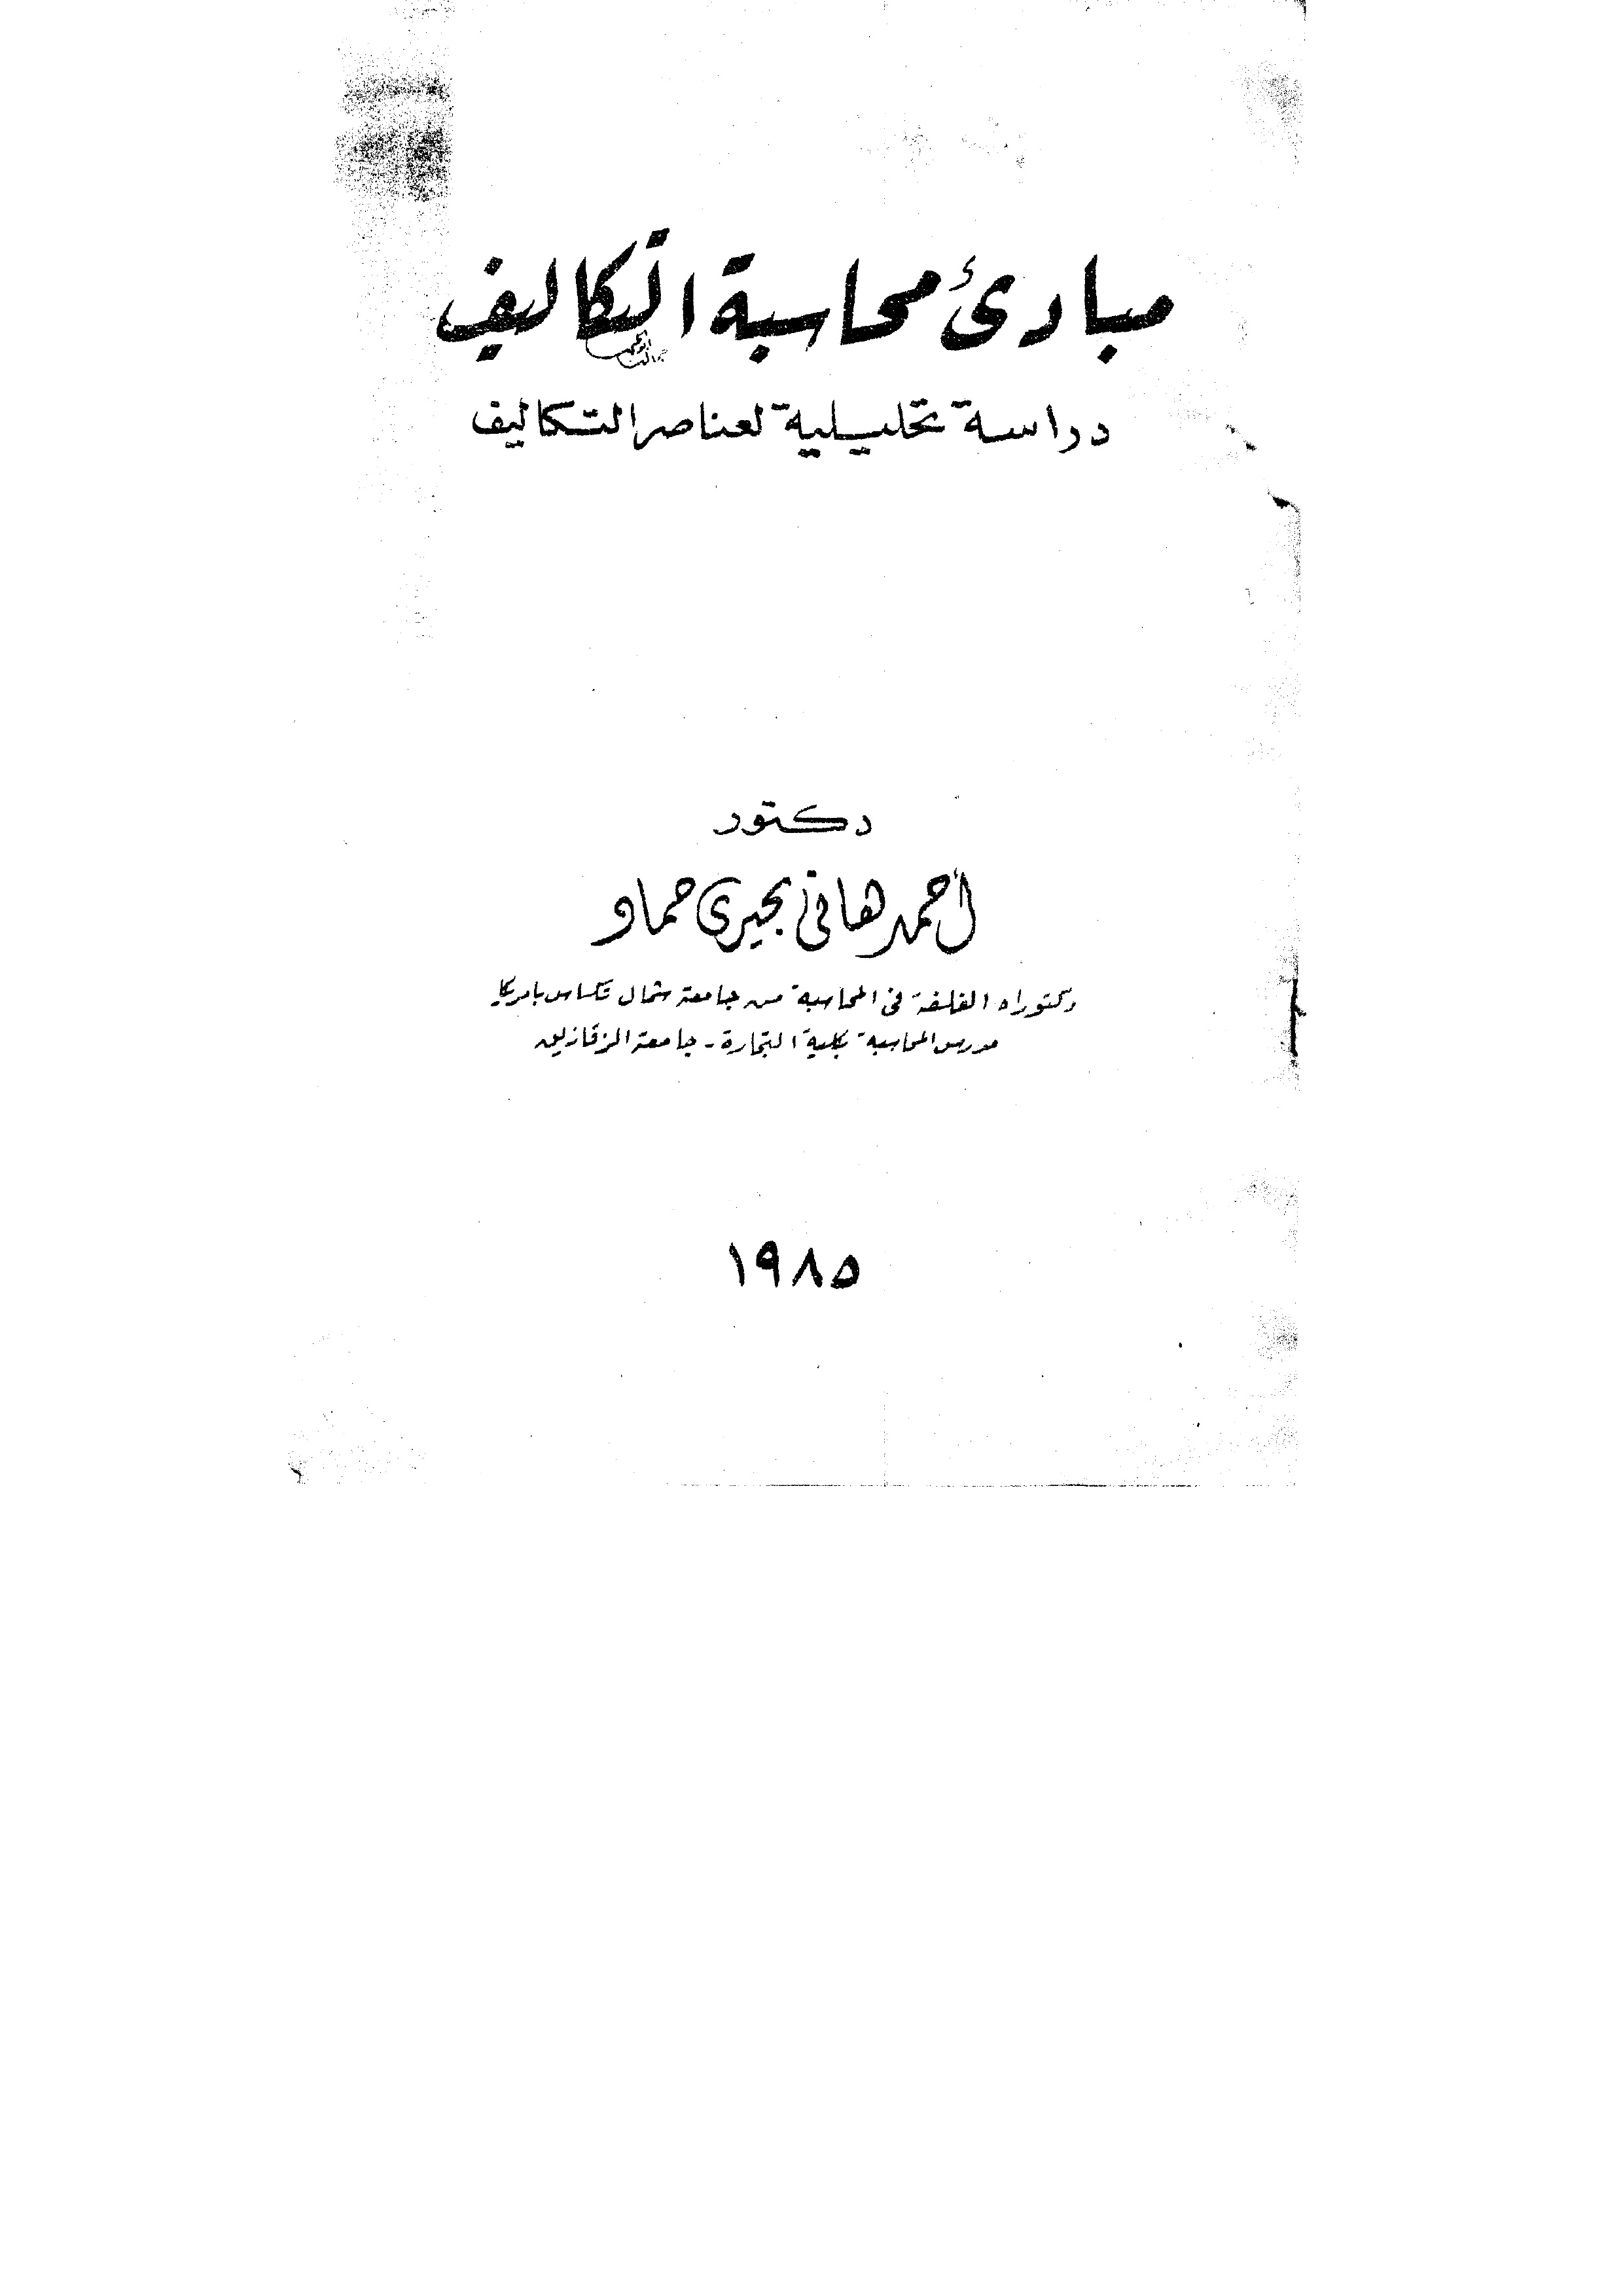 مبادئ محاسبة التكاليف
دراسة تحليلية لعناصر التكاليف
دكتور
أحمد هانى بحيرى حماد
دكتوراه الفلسفة فى المحاسبة من جامعة شمال تكساس بامريكا
مدرس المحاسبة بكلية التجارة - جامعة الزقازيق
١٩٨٥